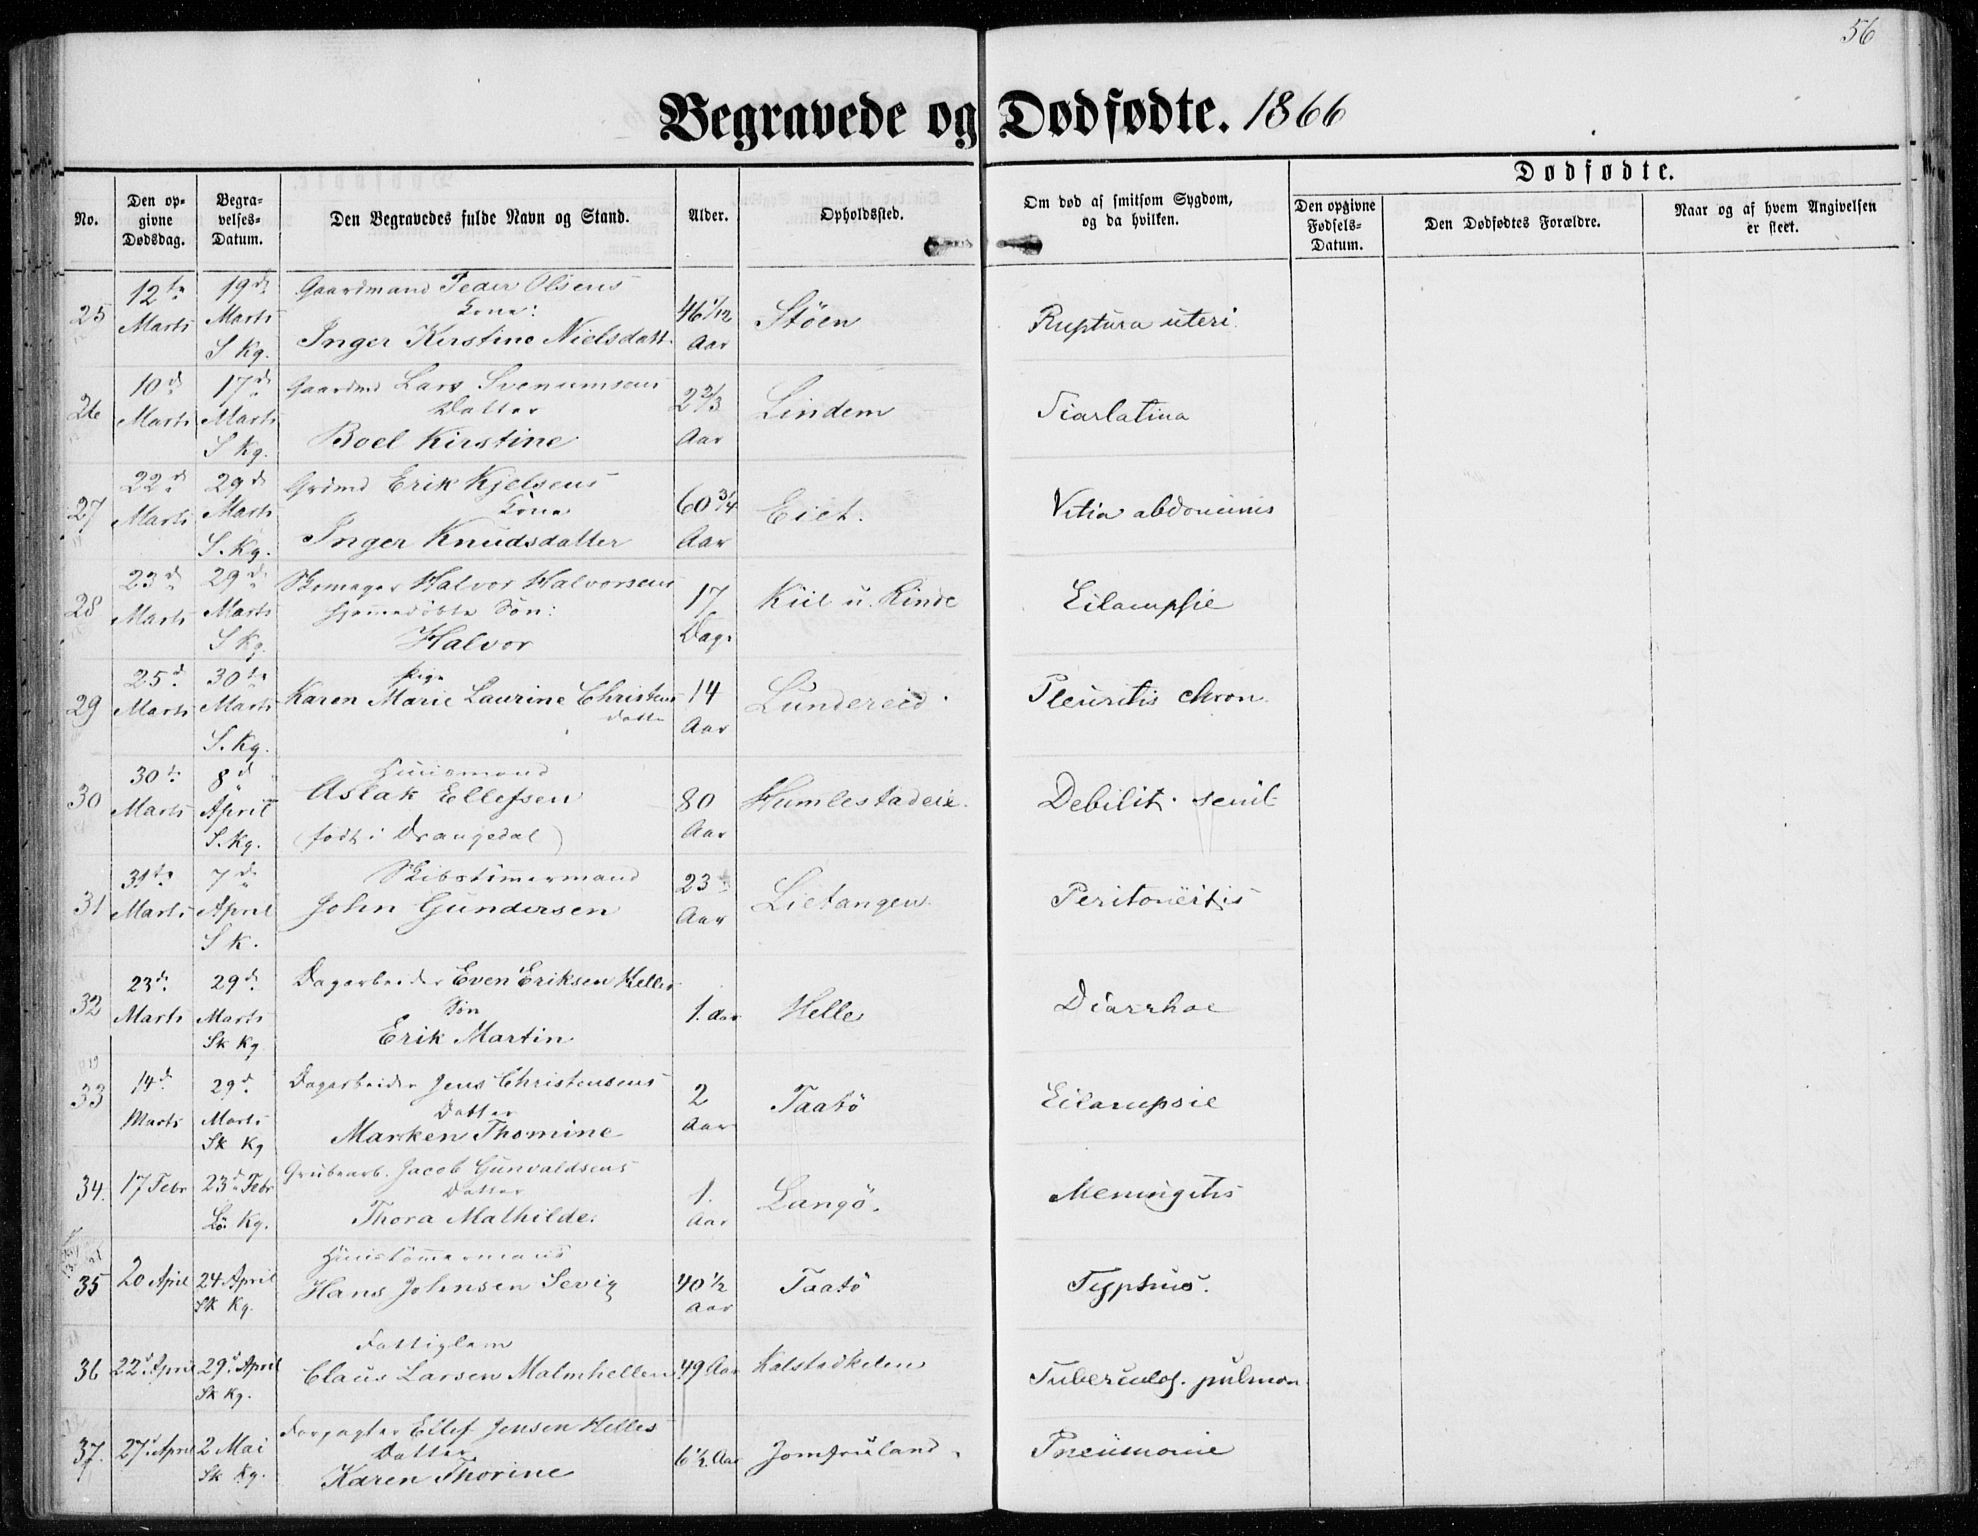 56
Begravede og Dødfødte. 1866
No.
Den opgivne Dødsdag.
Begravelses-Datum.
Den Begravedes fulde Navn og Stand.
Alder.
Opholdssted.
Om død af smitsom Sygdom, og da hvilken.
Dødfødte.
Den opgivne Fødsels-Datum.
Den Dødfødtes Forældre.
Naar og af hvem Angivelsen er skeet.
25 12te Marts 19de Marts S Kg.
Gaardmand Peder Olsens
Kone:
Inger Kirstine Nielsdatt.
46 1/12 Aar Stöen Ruptura uteri.
26 10de Marts 17de Marts S Kg.
Gaardmd Lars Svenumsens
Datter
Boel Kirstine
2 2/3 Aar Lindem Scarlatina
27 22de Marts 29de Marts S. Kg.
Grdmd Erik Kjelsens
Kone
Inger Knudsdatter
60 3/4 Aar Eiet. Vitia abdominis
28 23de Marts 29de Marts S Kg.
Skomager Halvor Halvorsens
hjemmedöbte Sön:
Halvor
17 Dage Kiil u. Rinde Eclampsie
29 25de Marts 30te Marts S. Kg.
Pige
Karen Marie Laurine Christens
datter
14 Aar Lundereid. Pleuritis chron.
30 30te Marts 8de April S. Kg.
Huusmand
Aslak Ellefsen
(født i Drangedal)
80 Aar Humlestadeie. Debilit. senil
31 31te Marts 7de April S K.
Skibstömmermand
John Gundersen
23 Aar Lietangen. Peritonëitis
32 23de Marts 29de Marts Sk Kg
Dagarbeider Even Eriksen Helles
Sön
Erik Martin
1. Aar Helle Diarrhoe
33 14de Marts 29de Marts Sk Kg
Dagarbeider Jens Christensens
Datter
Marken Thomine
2 Aar Taatö Eclampsie
34. 17 Febr 23de Febr Lö. Kg.
Grubearb. Jacob Gunvaldsens
Datter
Thora Mathilde.
1. Aar Langö. Meningitis
35 20 April 24 April Sk Kg.
Huustömmermand
Hans Johnsen Sevig
40 1/2 Aar Taatö Typhus.
36 22de April 29de April Sk Kg.
Fattiglem
Claus Larsen Malmhellen
49 Aar Kalstadkilen Tuberculos. pulmon.
37. 27de April 2 Mai Sk Kg.
Forpagter Ellef Jensen Helles
Datter
Karen Thorine
6 1/2 Aar Jomfruland. Pneumonie